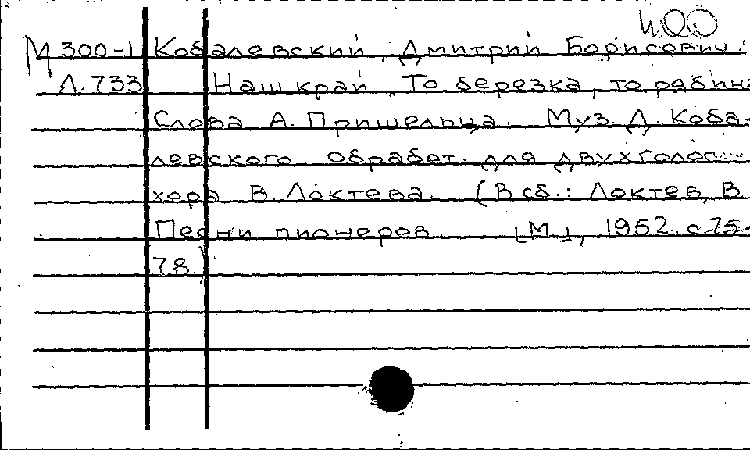 ИОО
М 300-1 Кобалевский, Дмитрий Борисович.
Л. 733 Наш край. То березка, то рябина
Слова А. Пришельца. Муз. Д. Коба-
левского. Обработ. для двухголос.
хора В. Локтева. (В сб.: Локтев, В.
Песни пионеров. [М.], 1952. с. 75-
78)